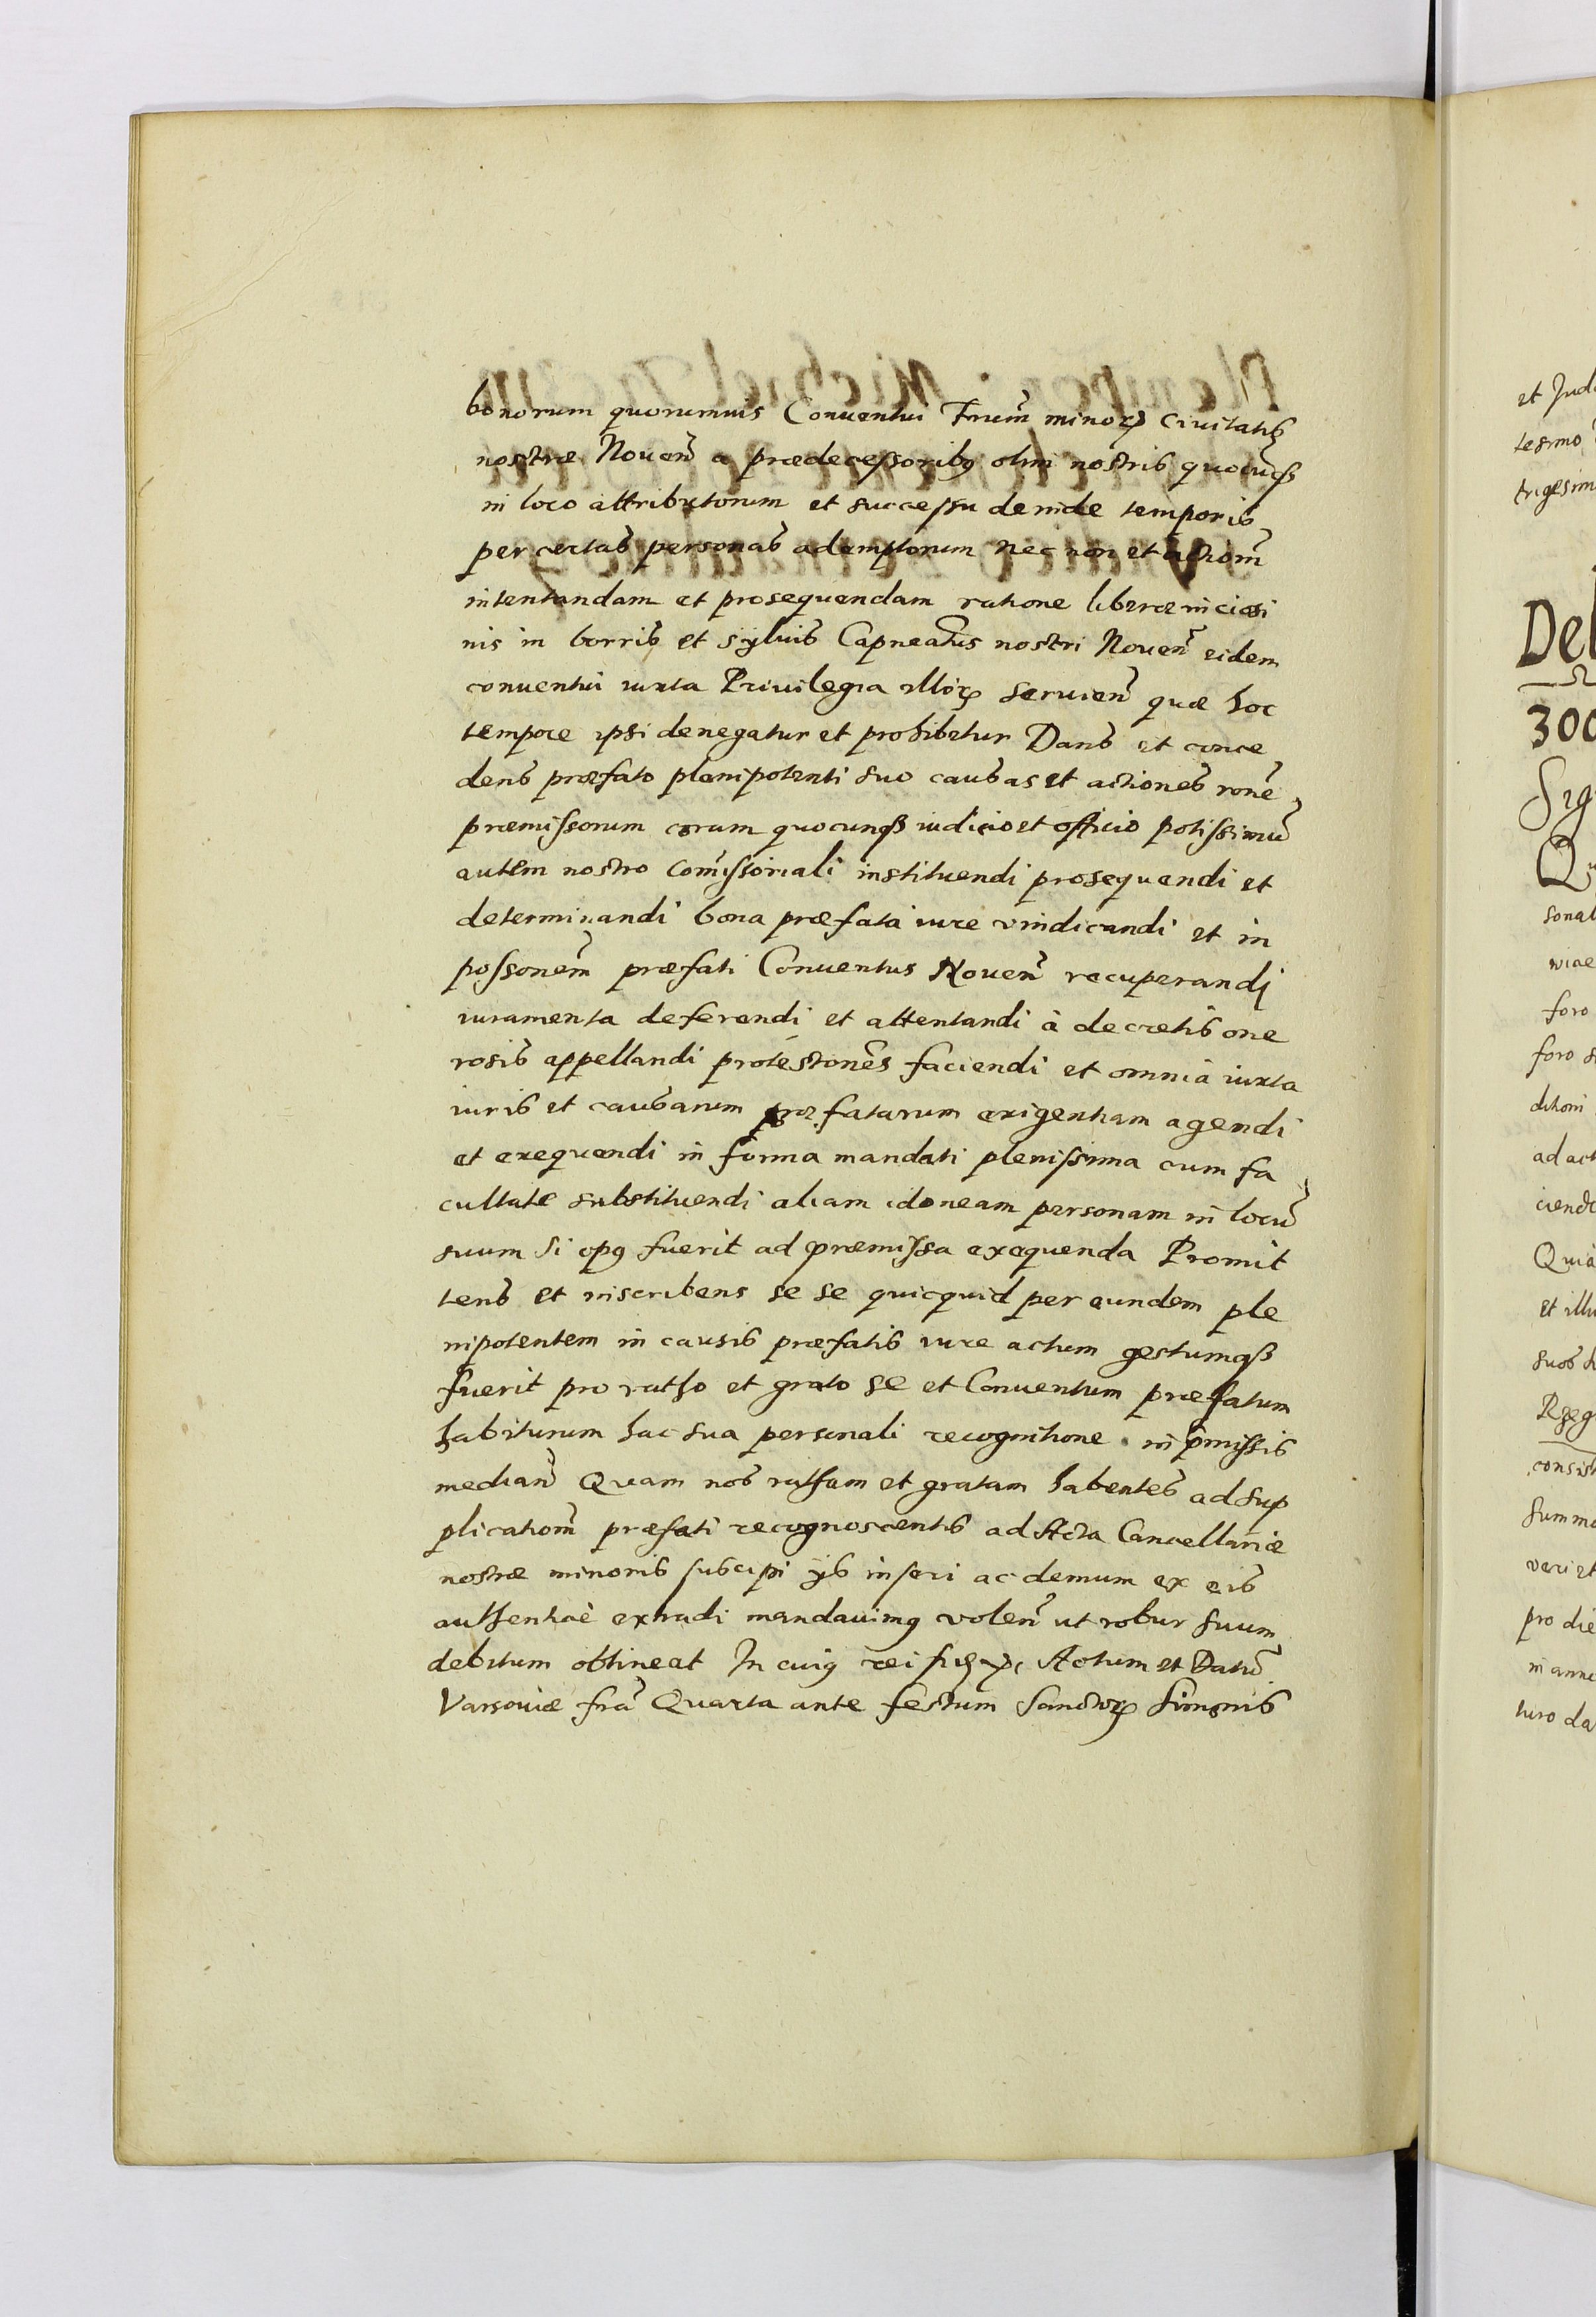 bonorum quorumuis Conuentui Frum̃ minorꝝ Ciuitatis
nostræ Nouen̄ a prædecessoribꝫ olim nostris quocūqꝫ
in loco attributorum et successu deinde temporis
per certas personas ademptorum nec non et actiom̃
intentandam et prosequendam ratione liberæ incisi
nis in borris et syluis Capneatus nostri Nouen̄ eidem
conuentui iuxta Priuilegia illorꝝ seruien̄ quæ hoc
tempore ipsi denegatur et prohibetur Dans et conce
dens præfato plenipotenti suo causas et actiones rone
præmissorum coram quocunqꝫ iudicio et officio potissimū
autem nostro Com̃issoriali instituendi prosequendi et
determinandi bona præfata iure vindicandi et in
possonem̃ præfati Conuentus Nouen̄ recuperandi
iuramenta deferendi et attentandi à decretis one
rosis appellandi protestōnes faciendi et omnia iuxta
iuris et causarum præfatarum exigentiam agendi
et exequendi in forma mandati plenissima cum fa
cultate substituendi aliam idoneam personam in locū
suum si opꝰ fuerit ad præmissa exequenda Promit
tens et inscribens se se quicquid per eundem ple
nipotentem in causis præfatis iure actum gestumqꝫ
fuerit pro ratho et grato se et Conuentum præfatum
habiturum hac sua personali recognitione in p̄missis
median̄ Quam nos ratham et gratam habentes ad sup
plicatiom̃ præfati recognoscentis ad Acta Cancellariæ
nostræ minoris suscipi ijs inseri ac demum ex eis
authenticè extradi mandauimꝰ volen̄ ut robur suum
debitum obtineat In cuiꝰ rei Actum et Datū
Varsouiæ fr̄a Quarta ante festum Sanctorꝝ Simonis
et Jud
tesimo
trigesim
Del
300
Sig
sonal
uiae
foro
foro s
ditioni
ad act
ciend
Quia
et illu
suos h
Reg
consist
Summa
veri et
pro die
in anno
turo da